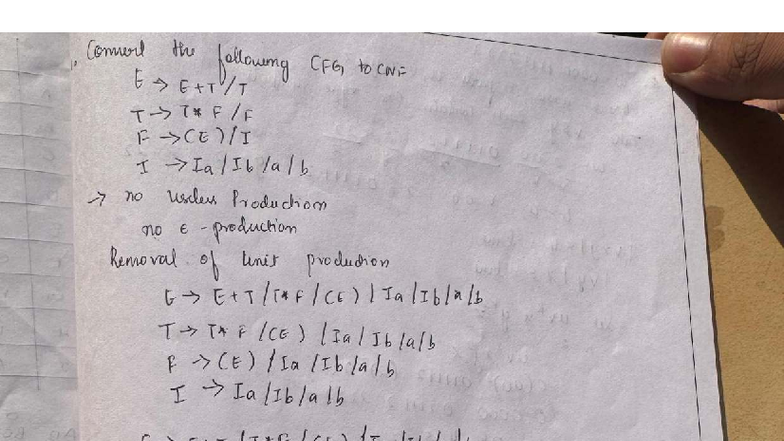 1. Convert the following CFG, to CNF
E → E+T/T
T → T* F/F
F → (E)/I
I → Ia/Ib/a/b
→ no useless Production
no ε - production
Removal of Unit production
E → E+T/T*F/(E)/Ia/Ib/a/b
T → T*F/(E)/Ia/Ib/a/b
F → (E)/Ia/Ib/a/b
I → Ia/Ib/a/b